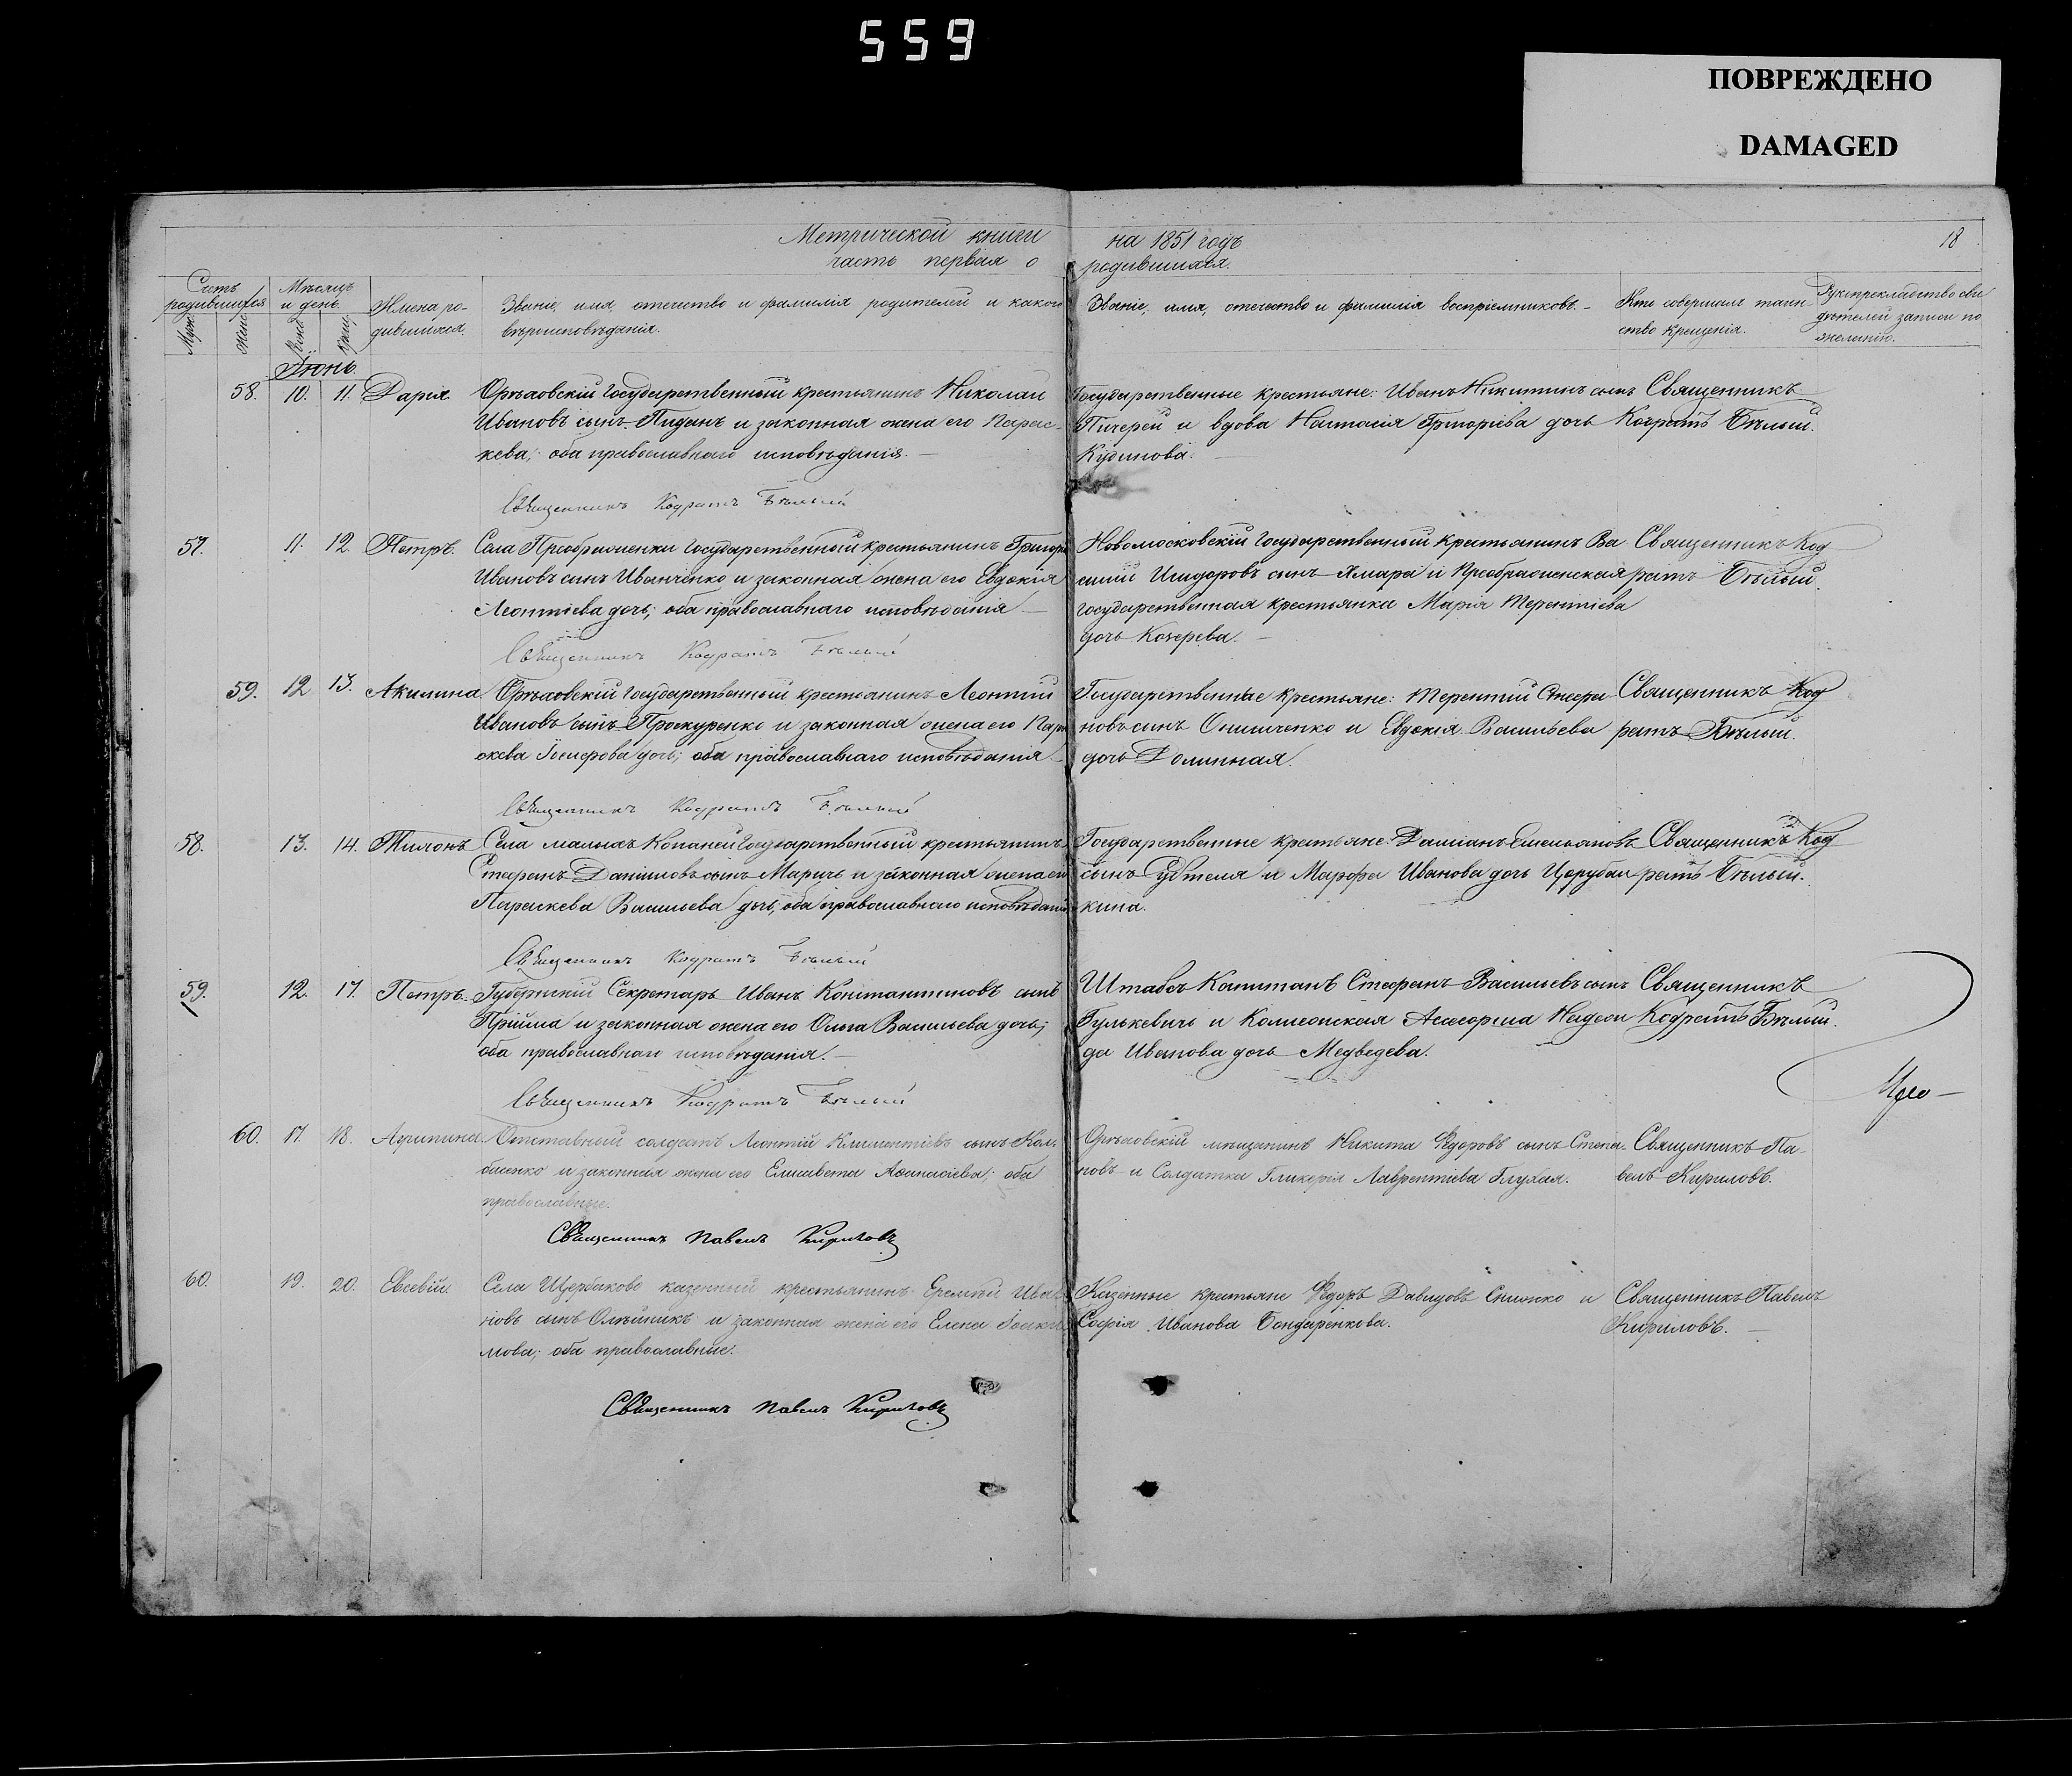 559
ПОВРЕЖДЕНО
DAMAGED
Метрической книги на 1851 годъ 18
часть первая о родившихся.
Счетъ родившихся
Муж. Жен.
Мѣсяцъ и день
Имена родившихся.
Званіе, имя, отечество и фамилія родителей и какого
вѣроисповѣданія.
Званіе, имя, отечество и фамилія воспріемниковъ.
Кто совершалъ таин
ство крещенія.
Рукоприкладство сви
дѣтелей записи по
желанію.
Іюнь.
58. 10. 11. Дарія. Орѣховскій Государственный крестьянинъ Николай
Ивановъ сынъ Пиданъ и законная жена его Парас-
кева; оба православнаго исповѣданія.
Государственные крестьяне: Иванъ Никитинъ сынъ
и вдова Настасія Григоріева дочь
Кудинова.
Священникъ
Кодратъ Бѣлый.
Священникъ Кодратъ Бѣлый
57. 11. 12. Петръ. Села Преображенки Государственный крестьянинъ Григорій
Ивановъ сынъ Иванченко и законная жена его Евдокія
Леонтіева дочь; оба православнаго исповѣданія
Новомосковскій Государственный крестьянинъ Ва
силій Исидоровъ сынъ и Преображенская
государственная крестьянка Марія Терентіева
дочь Кочерева.
Священникъ Код
ратъ Бѣлый.
Священникъ Кодратъ Бѣлый
59. 12 13. Акилина Орѣховскій Государственный крестьянинъ Леонтій
Ивановъ сынъ Проскуренко и законная жена его Пара
скева дочь; оба православнаго исповѣданія
Государственные крестьяне: Терентій Стефа
новъ сынъ Онищенко и Евдокія Васильева
дочь Долинная.
Священникъ Код
ратъ Бѣлый.
Священникъ Кодратъ Бѣлый
58. 13. 14. Тихонъ Села малыхъ Копаней Государственный крестьянинъ
Стефанъ Даніиловъ сынъ и законная жена его
Параскева Васильева дочь; оба православнаго исповѣданія
Государственные крестьяне: Даміанъ Емельяновъ
сынъ и Марфа Иванова дочь Церубал
кина.
Священникъ Код
ратъ Бѣлый.
Священникъ Кодратъ Бѣлый
59. 12. 17. Петръ. Губернскій Секретарь Иванъ Константиновъ сынъ
Прійма и законная жена его Ольга Васильева дочь;
оба православнаго исповѣданія.
Штабсъ Капитанъ Стефанъ Васильевъ сынъ
Гулькевичъ и Колежская Асесорша Надеж
да Иванова дочь Медведева.
Священникъ
Кодратъ Бѣлый.
Священникъ Кодратъ Бѣлый
60. 17. 18. Агрипина Отставный солдатъ Леонтій Климентіевъ сынъ Кол-
басенко и законная жена его Елисавета Аѳанасіева; оба
православные.
Орѣховскій мѣщанинъ Никита Ѳедоровъ сынъ Степа-
новъ и Солдатка Гликерія Лаврентіева Глухая.
Священникъ Па-
велъ Кириловъ.
Священникъ Павелъ Кириловъ
60. 19. 20. Евсевій. Села Щербаково казенный крестьянинъ Еремѣй Ива
новъ сынъ Олѣйникъ и законная жена его Елена Іоаки
мова; оба православные.
Казенные крестьяне Ѳедоръ Давидовъ Снижко и
Софія Иванова Бондаренкова.
Священникъ Павелъ
Кириловъ.
Священникъ Павелъ Кириловъ